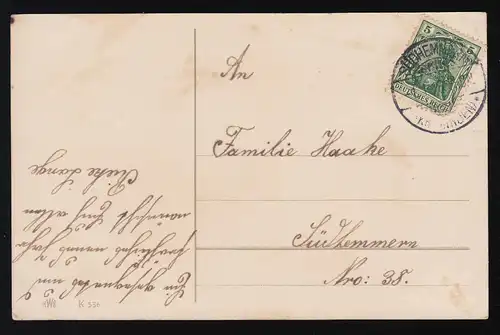 5
DEUTSCHES REICH
An
Familie Haake
Südhemmern
Nro: 38.
Ein gesegnetes und
fröhliches neues Jahr
wünscht Euch allen
Lange
K 556